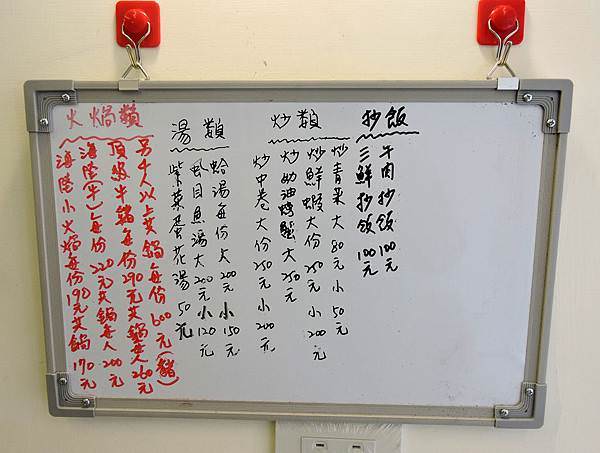 抄飯
牛肉抄飯100元
三鮮抄飯100元
炒類
炒青菜大80元小50元
炒鮮蝦大份250元小200元
炒奶油螃蟹大250元
炒中卷大份250元小200元
湯類
蛤湯每份大200元小150元
虱目魚湯大200元小120元
紫菜蛋花湯50元
火焗類
另4人以上共鍋每份600元(豬)
頂級牛豬每份290元共鍋每人260元
海陸(牛)每份220元共鍋每人200元
海陸小火焗每份190元共鍋170元